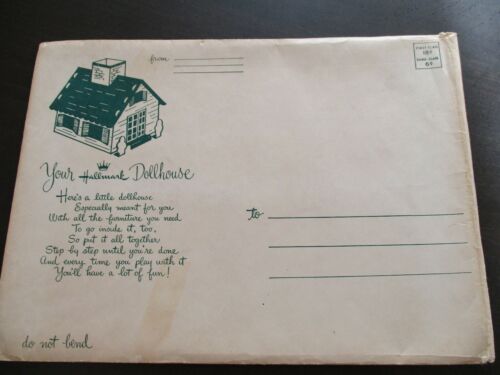 from
FIRST CLASS
18¢
THIRD CLASS
6¢
Your Hallmark Dollhouse
Here's a little dollhouse
Especially meant for you
With all the furniture you need
To go inside it, too,
So put it all together
Step by step until you're done
And every time you play with it
You'll have a lot of fun!
to
do not bend